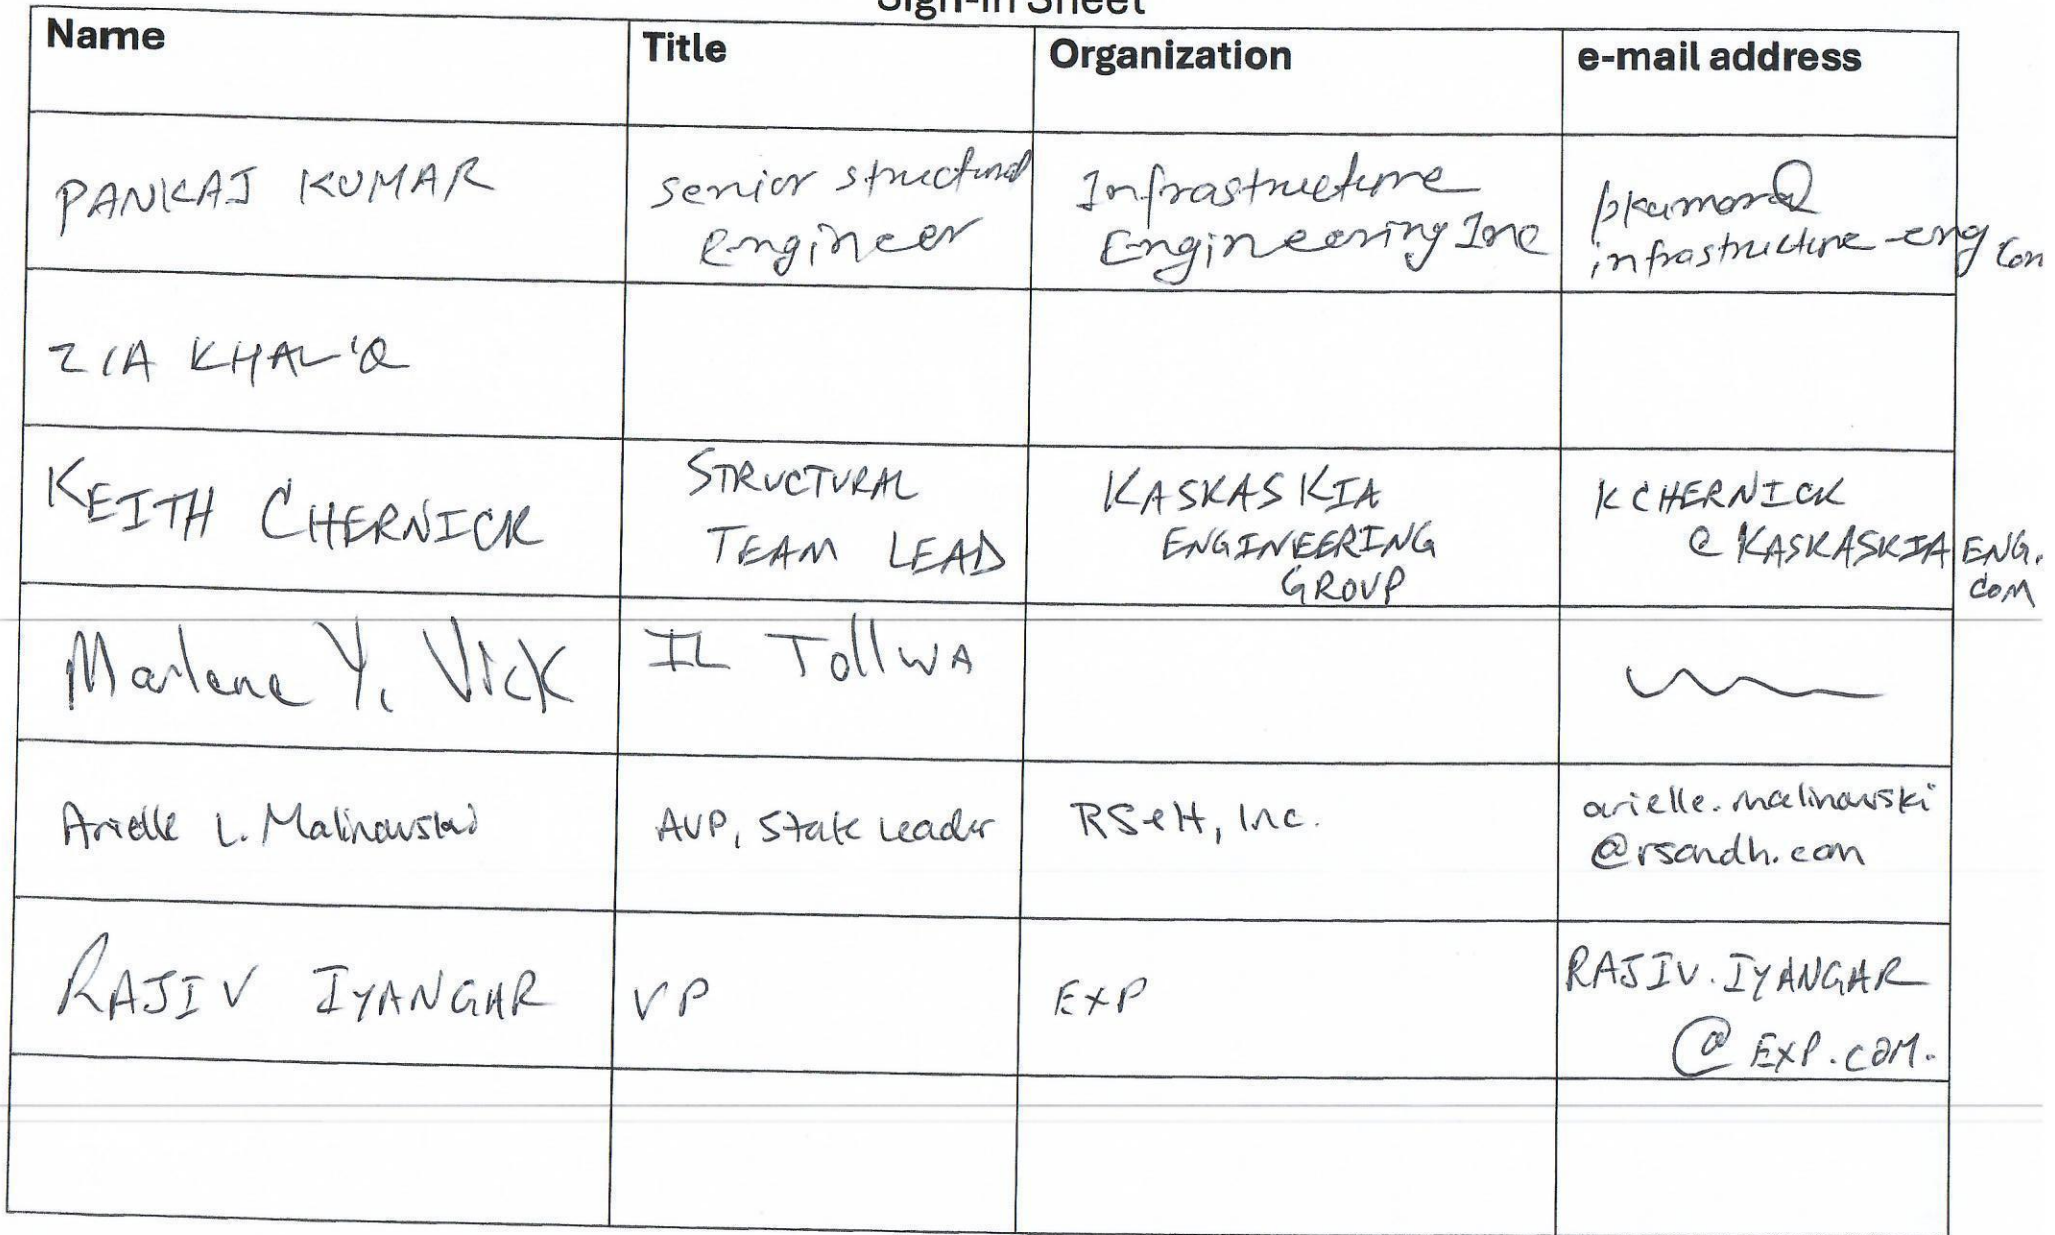 Sign-In Sheet
Name Title Organization e-mail address
PANKAJ KUMAR
senior structural
engineer
Infrastructure
Engineering Inc
pkumar@
infrastructure-eng.com
ZIA KHALIQ
KEITH CHERNICK
STRUCTURAL
TEAM LEAD
KASKASKIA
ENGINEERING
GROUP
KCHERNICK
@ KASKASKIAENG.
COM
Marlene Y. Vick
IL Tollwa
Arielle L. Malinowski
AVP, State Leader
RS&H, Inc.
arielle.malinowski
@rsandh.com
RAJIV IYANGAR
VP
EXP
RAJIV.IYANGAR
@ EXP.COM.